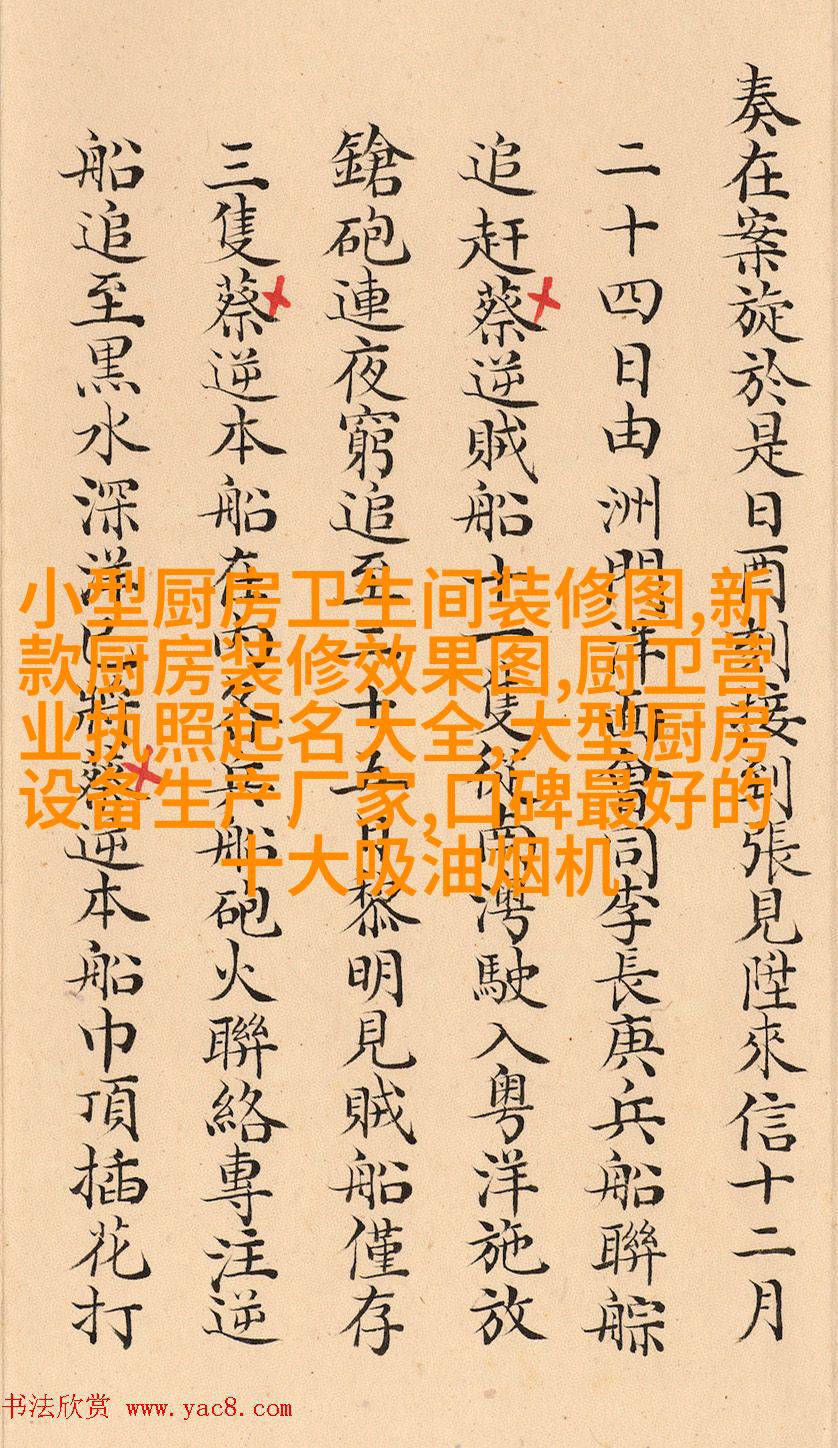 奏在案旋於是日酉刻接到張見陞來信十二月
二十四日由洲洋面會同李長庚兵船聯䑸
追赶蔡逆賊船十一隻灣駛入粤洋施放
鎗砲連夜窮追至二十五日黎明見賊船僅存
三隻蔡逆本船在內各兵船砲火聯絡專注逆
船追至黑水深洋已將蔡逆本船巾頂插花打
小型厨房卫生间装修图,新
款厨房装修效果图,厨卫营
业执照起名大全,大型厨房
设备生产厂家,口碑最好的
十大吸油烟机
书法欣赏 www.yac8.com